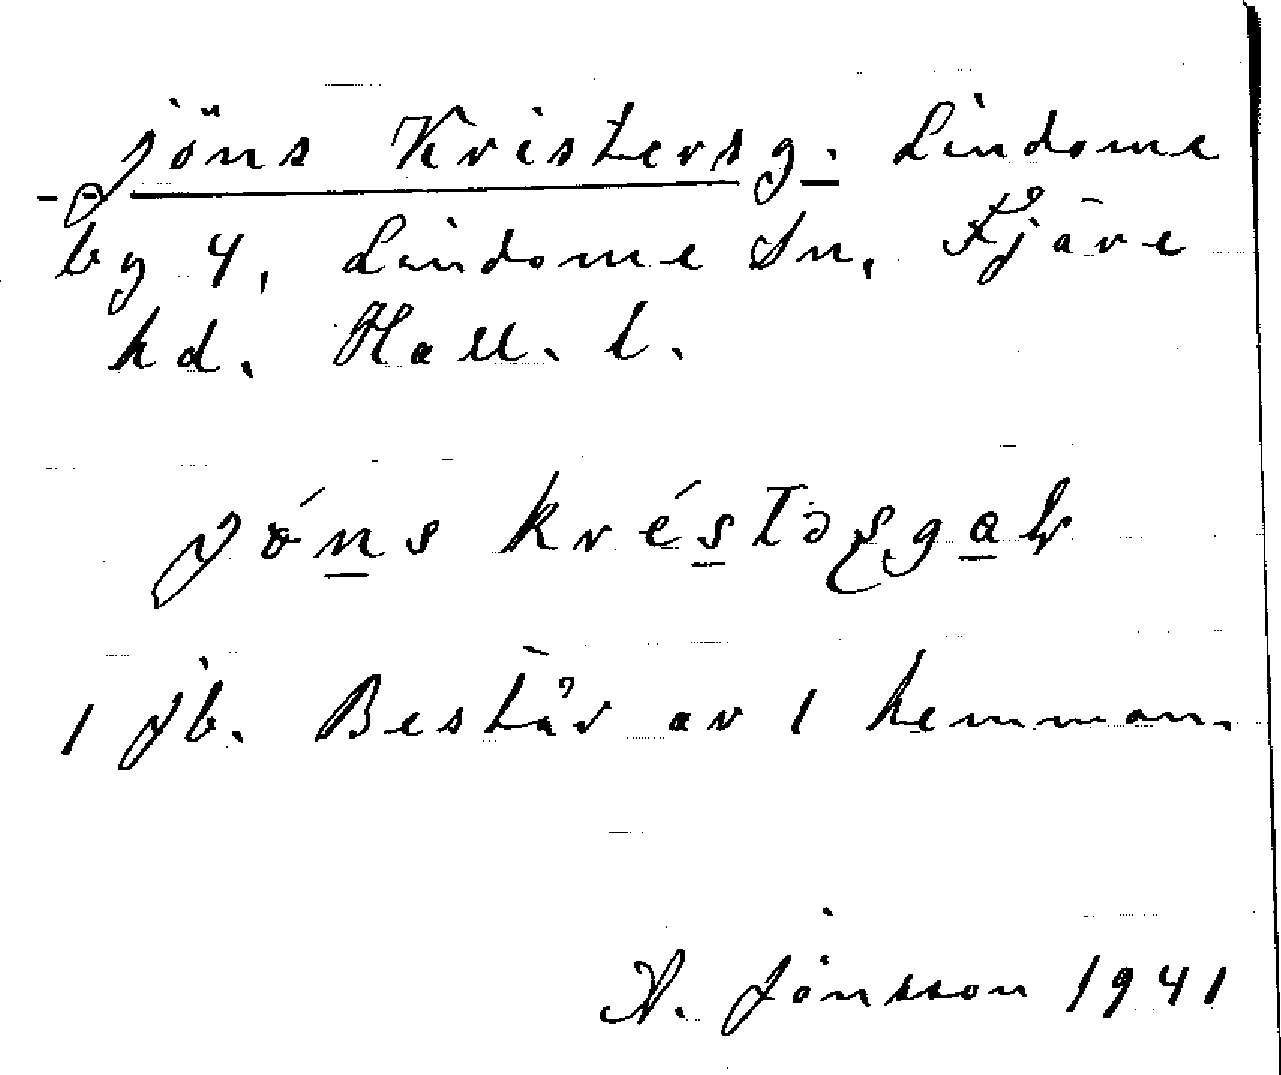 Jöns Kristersg. Lindome
by 4, Lindome sn, Fjäre
hd. Hall. l.
jö́ns kréstəʂgaɽ
1 jb. Består av 1 hemman.
A. Jönsson 1941